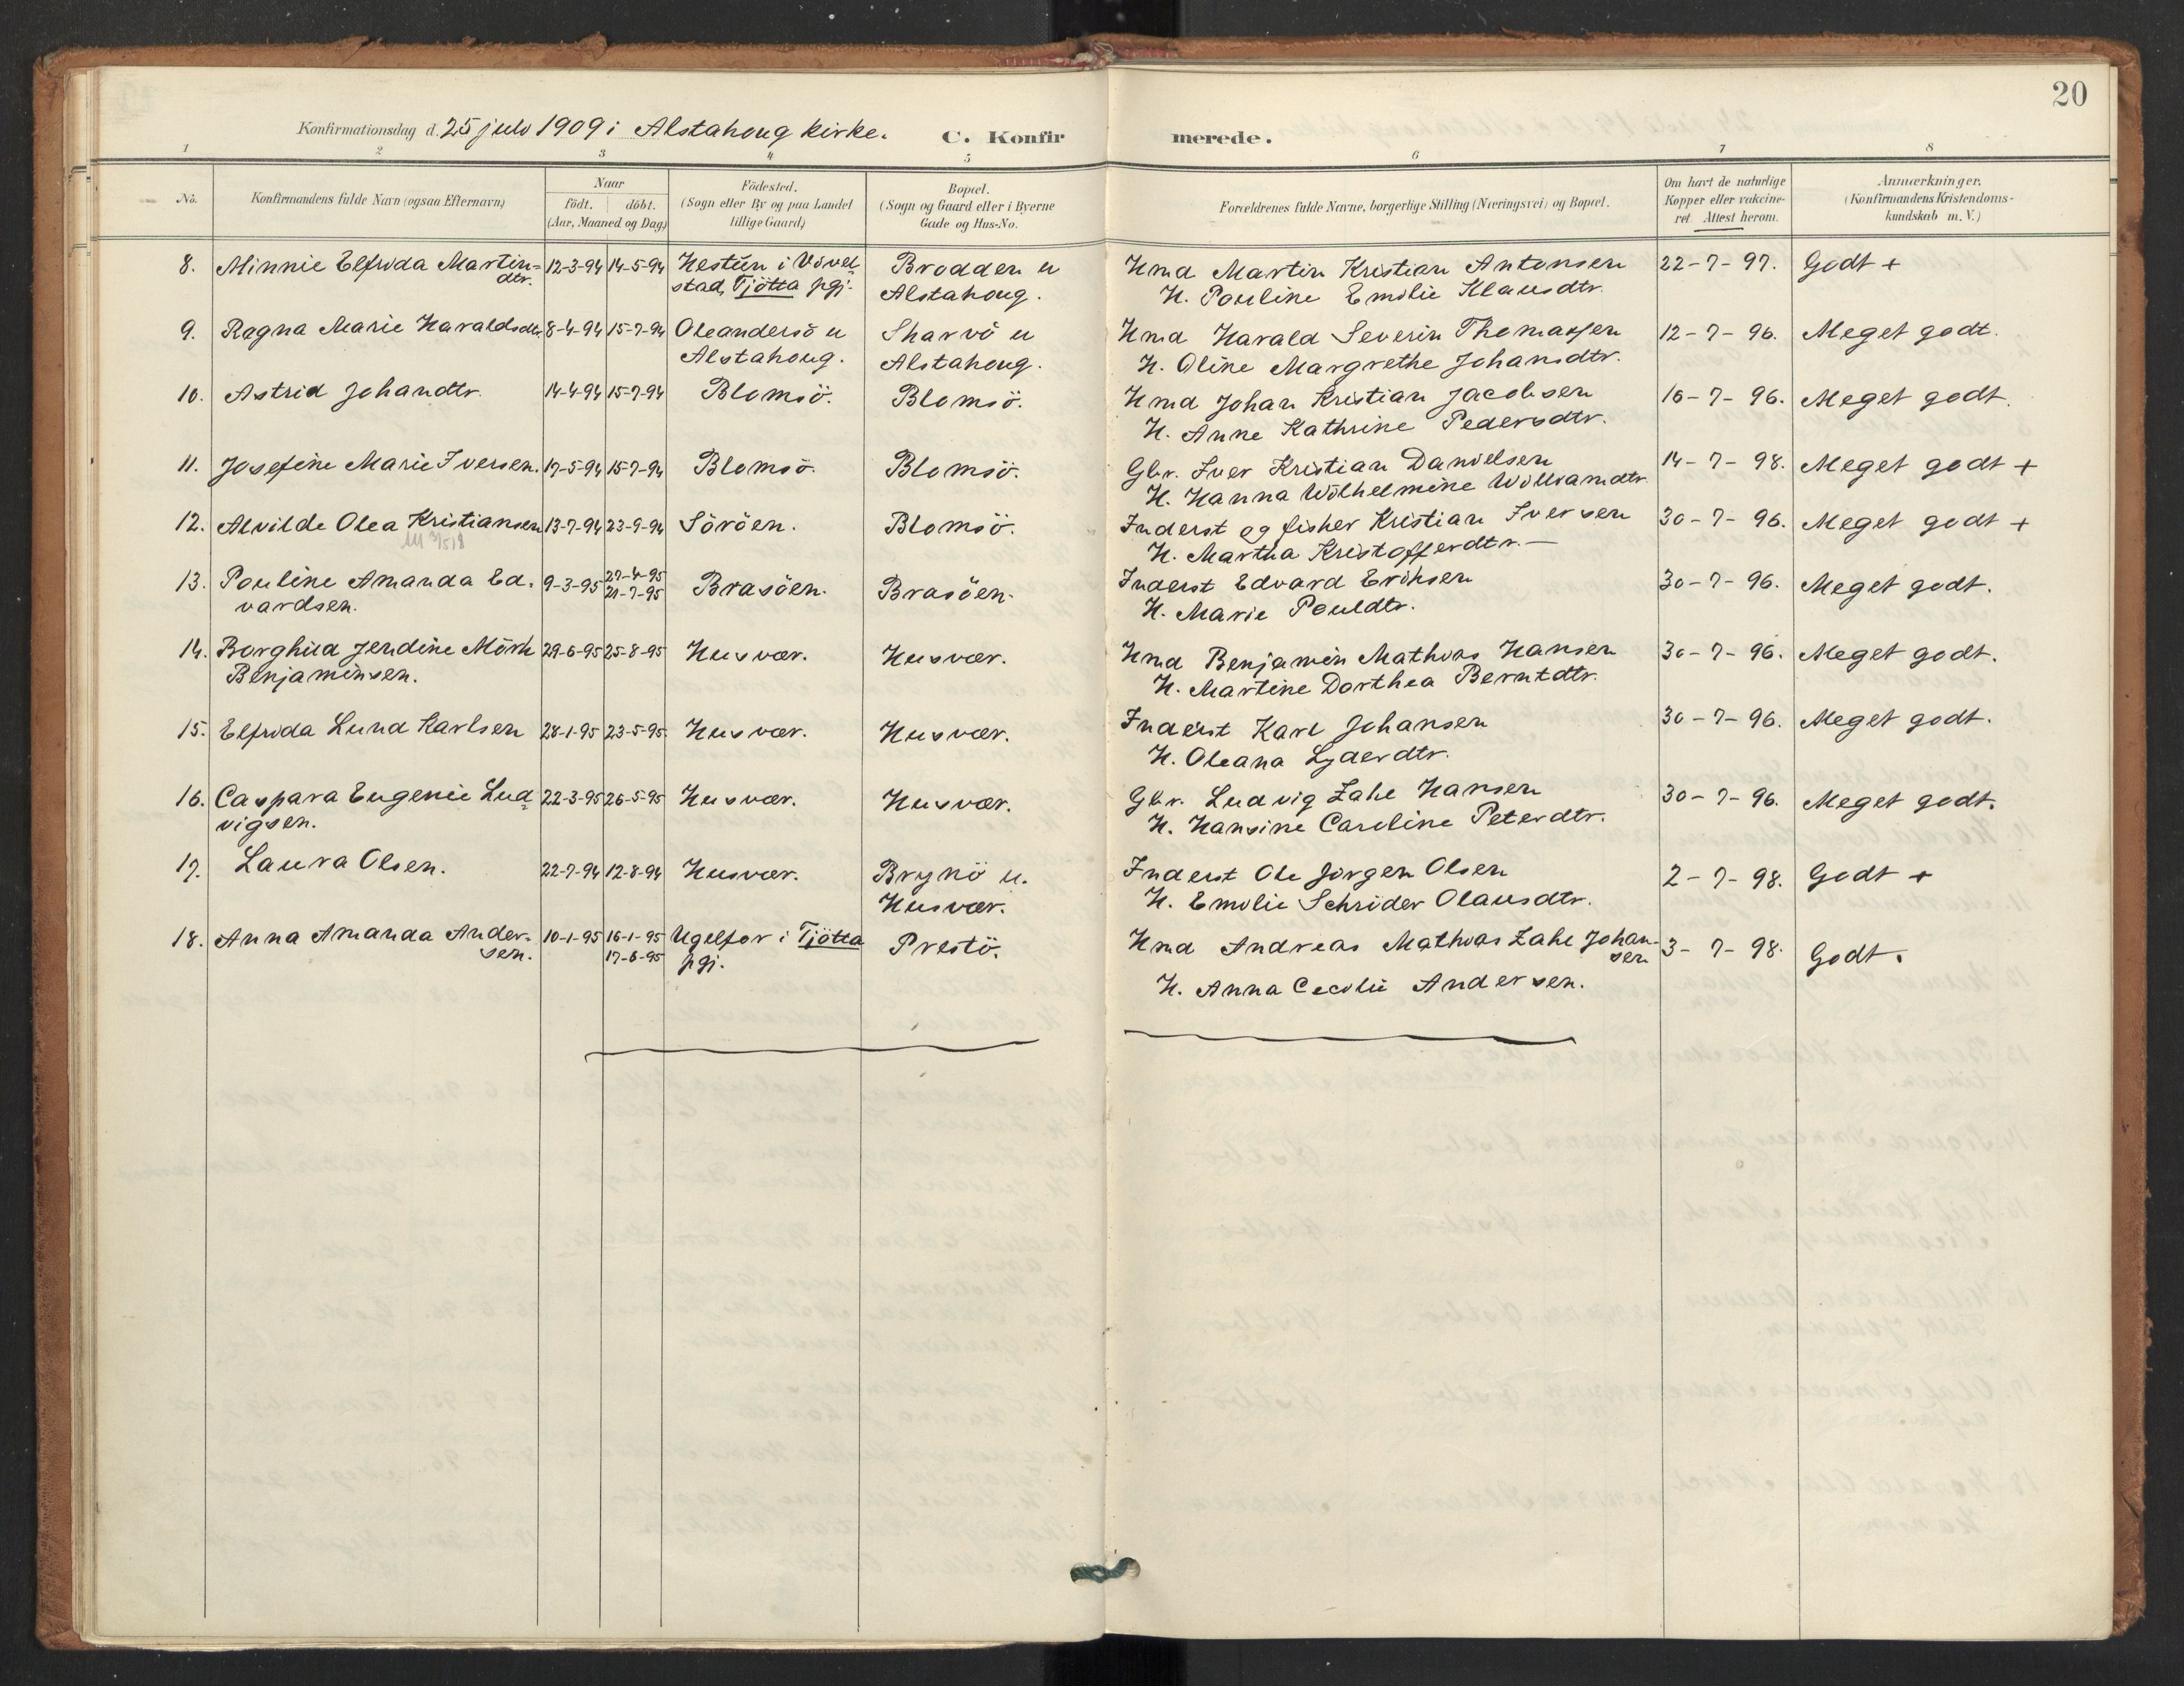 20
Konfirmationsdag d. 25 juli 1909 i Alstahoug kirke. C. Konfirmerede.
1 2 3 4 5 6 7 8
No. Konfirmandens fulde Navn (ogsaa Efternavn) Naar födt. döbt. (Aar, Maaned og Dag) Födested. (Sogn eller By og paa Landet tillige Gaard) Bopæl. (Sogn og Gaard eller i Byerne Gade og Hus-No. Forældrenes fulde Navne, borgerlige Stilling (Næringsvei) og Bopæl. Om havt de naturlige Kopper eller vakcineret. Attest herom. Anmærkninger. (Konfirmandens Kristendomskundskab m. V.)
8. Minnie Elfrida Martin= 12-3-94 14-5-94 Hestün i Vivel= Brodden u Kmd Martin Kristian Antonsen 22-7-97. Godt +
dtr. stad, Tjötta pgj. Alstahoug. H. Pouline Emilie Klausdtr.
9. Ragna Marie Haraldsdtr. 8-4-94 15-7-94 Oleandersö u Skarvö u Hmd Harald Severin Thomassen 12-7-96. Meget godt.
Alstahoug. Alstahoug. H. Oline Margrethe Johansdtr.
10. Astrid Johandtr. 14-4-94 15-7-94 Blomsö. Blomsö. Hmd Johan Kristian Jacobsen 16-7-96. Meget godt.
H. Anne Kathrine Pedersdtr.
11. Josefine Marie Iversen. 17-5-94 15-7-94 Blomsö. Blomsö. Gbr. Iver Kristian Danielsen 14-7-98. Meget godt +
H. Hanna Wilhelmine Williamdtr.
12. Alvilde Olea Kristiansen 13-7-94 23-9-94 Söröen. Blomsö. Inderst og fisker Kristian Iversen 30-7-96. Meget godt +
H. Martha Kristofferdtr. —
13. Pouline Amanda Ed- 9-3-95 27-4-95 Brasöen. Brasöen. Inderst Edvard Eriksen 30-7-96. Meget godt.
vardsen. 21-7-95 H. Marie Pouldtr.
14. Borghild Jendine Mörk 29-6-95 25-8-95 Husvær. Husvær. Hmd Benjamin Mathias Hansen 30-7-96. Meget godt.
Benjaminsen. H. Martine Dorthea Berntdtr.
15. Elfrida Lund Karlsen 28-1-95 23-5-95. Husvær. Husvær. Inderst Karl Johansen 30-7-96. Meget godt.
H. Oleana Lyderdtr.
16. Caspara Eugenie Lud= 22-3-95 26-5-95 Husvær. Husvær. Gbr. Ludvig Zahl Hansen 30-7-96. Meget godt.
vigsen. H. Hansine Caroline Peterdtr.
17. Laura Olsen. 22-7-94 12-8-94 Husvær. Brynö u. Inderst Ole Jörgen Olsen 2-7-98. Godt +
Husvær. H. Emilie Schröder Olausdtr.
18. Anna Amanda Ander- 10-1-95 16-1-95 Ugelfor i Tjötta Prestö. Hmd Andreas Mathias Zahl Johan- 3-7-98. Godt.
sen. 17-6-95 pgj. sen
H. Anna Cecilie Andersen.